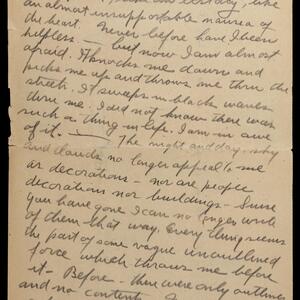 an almost insupportable nausea of
the heart. Never before have I been
helpless — but now I am almost
afraid. It knocks me down and
picks me up and throws me thru the
streets. It sweeps in black waves
thru me. I did not know there was
such a thing in life. I am in awe
of it. — The night and day — sky
and clouds no longer appeal to me
as decorations — nor are people
decorations nor buildings — Since
you have gone I can no longer work
of them that way. Every thing seems
the part of some vague unoutlined
force which throws me before
it — Before there were only outlines
and no contents